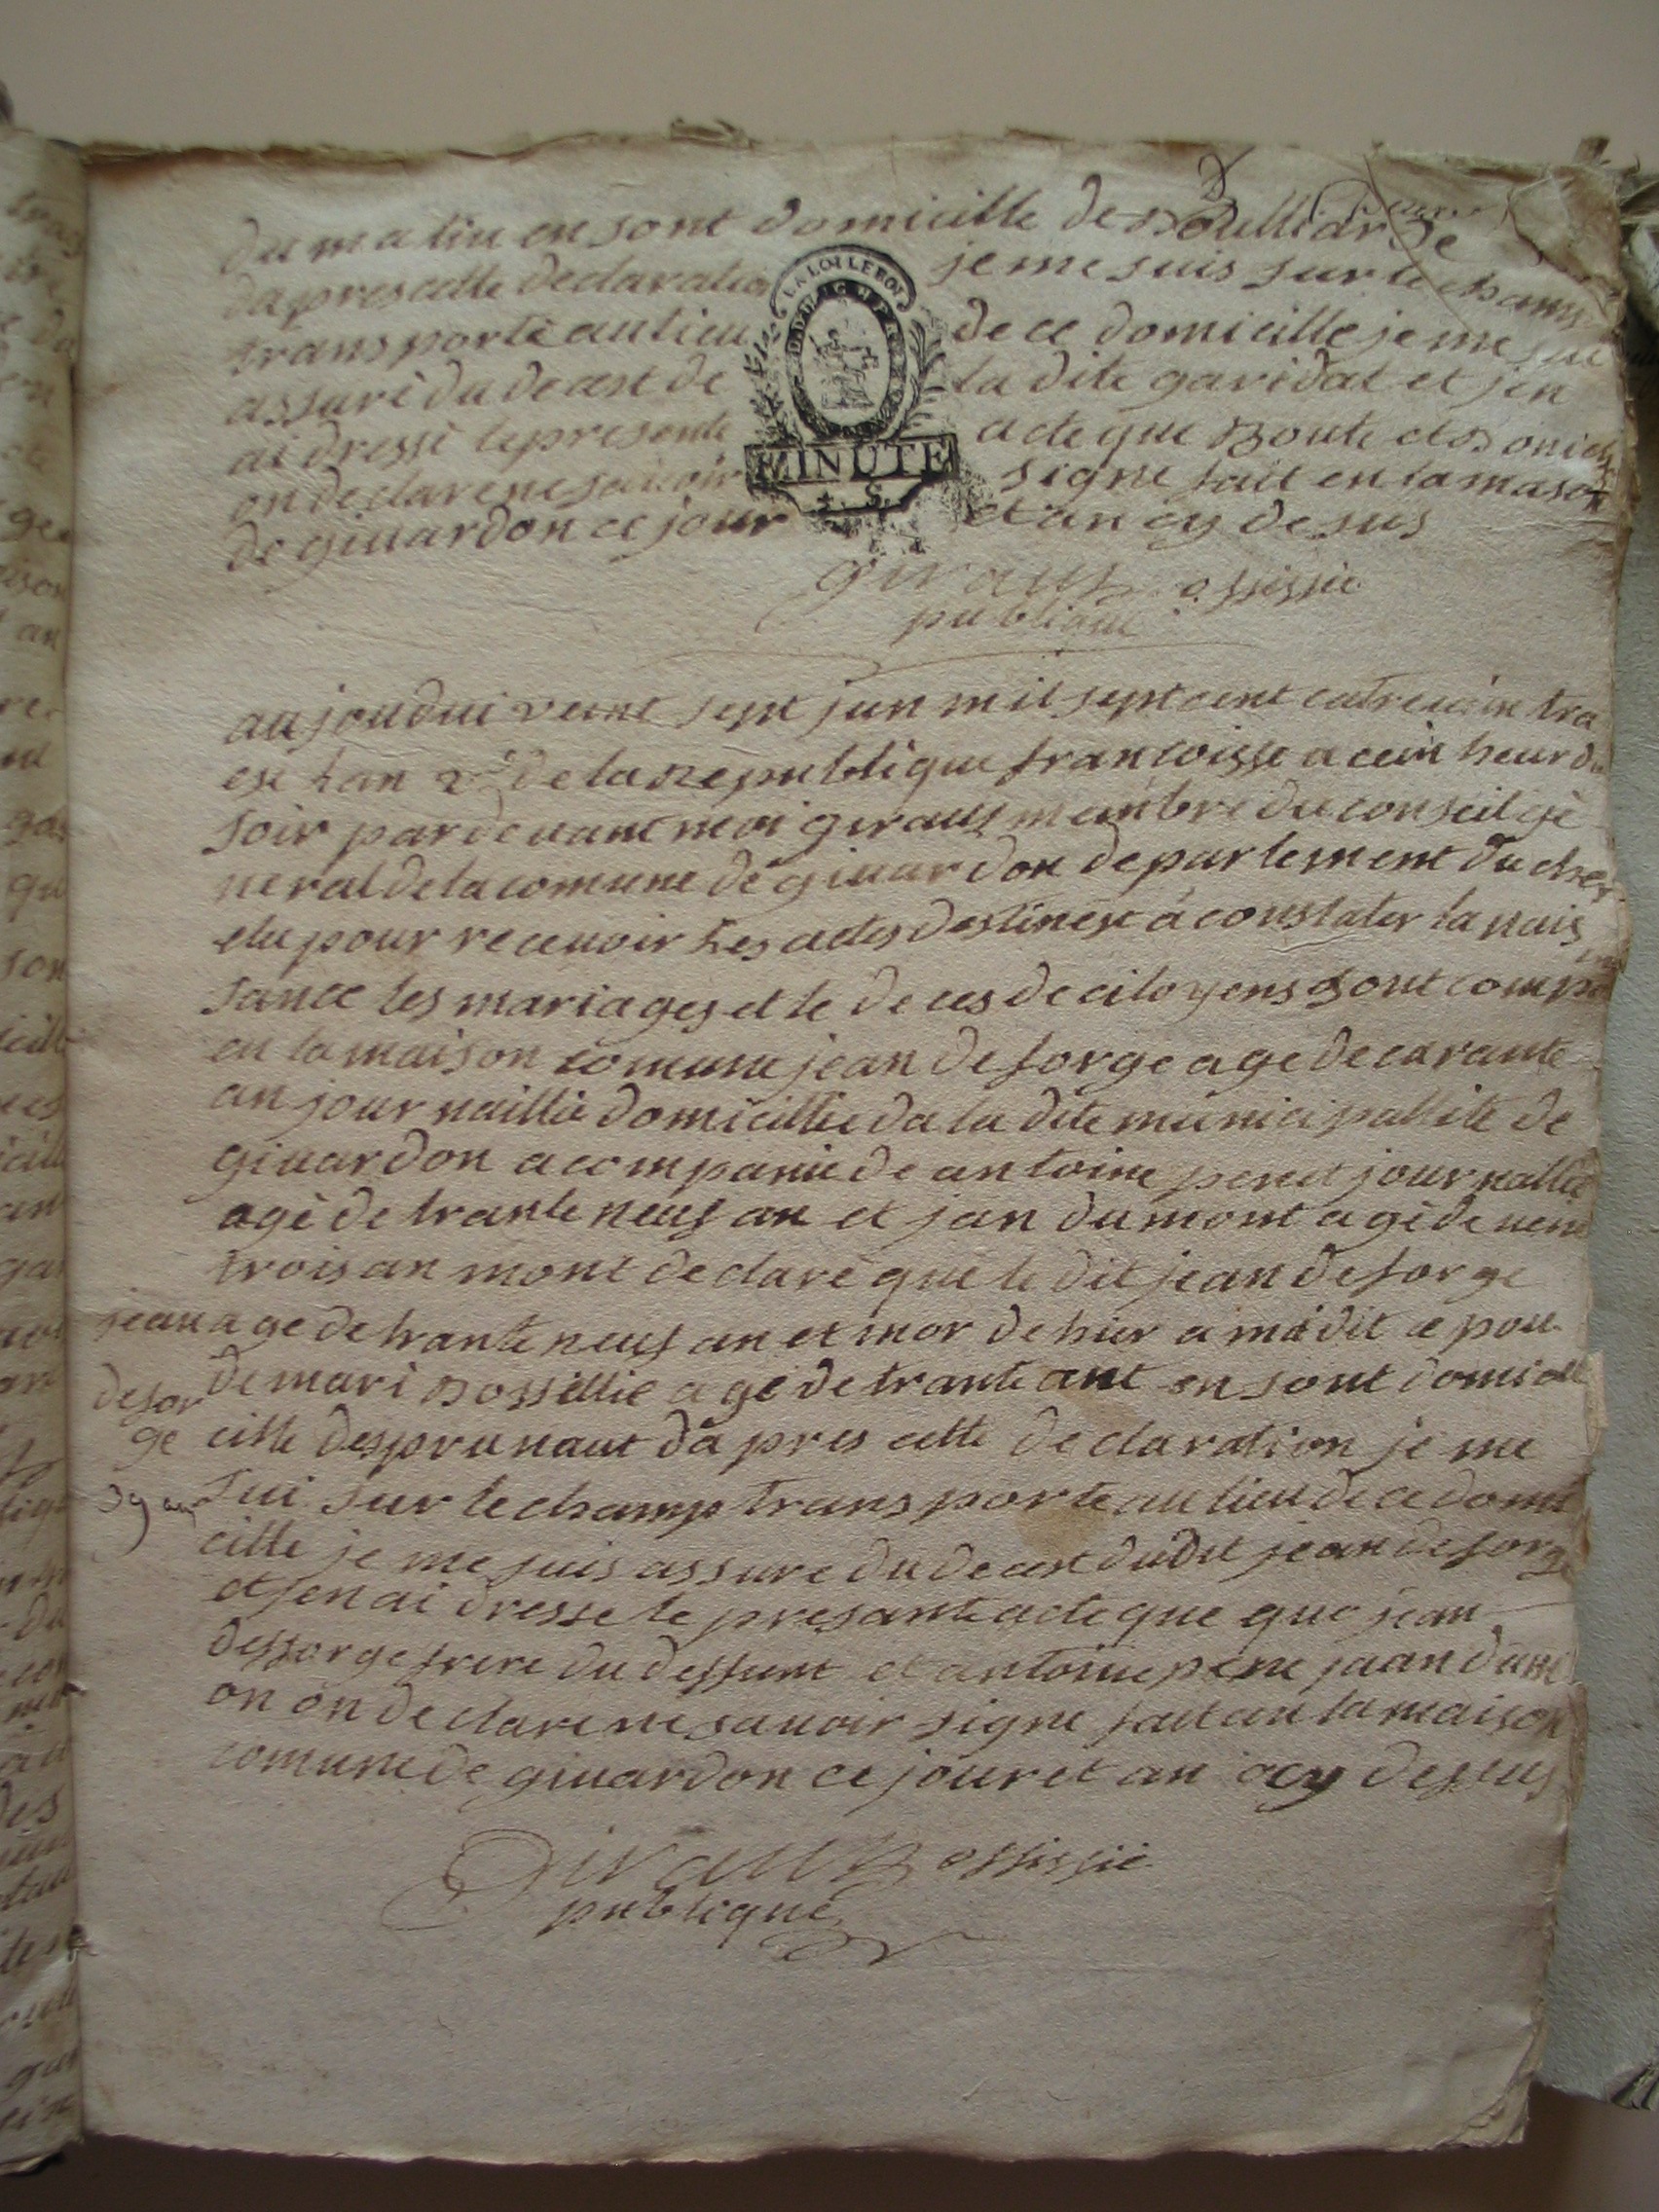 du matin en sont domicille de
dapres cette declaration je me suis sur le champ
transporté au lieu de ce domicille je me sui
assuré du decest de la dite garidat et jen
ai dressé le presente acte que
on declare ne savoir signe fait en la mason
de givardon ce jour et an cy desus
LA LOI LE ROI
MINUTE
4. S.
giraut offissié
publique
aujoudui veint sept jun mil sept cent catrevin tra
ese lan 2e de la Republique francoisse a cein heur du
soir par devant moi giraut membre du conseil gé
neral de la comune de givardon departement du cher
elu pour recevoir les actes destinest à constater la nais
sance les mariages et le deces de citoyens sont comp
en la maison comune jean desorge age de carante
an journaillié domicillié da la dite municipallité de
givardon acompanié de antoine peret journallié
agé de trante neuf an et jan dumont agé de vent
trois an mont declaré que le dit jean desorge
jean age de trante neuf an et mor de hier a midit epou
desor de mari Bossillié agé de trante ant en sont domicille
ge cille des prunaut dà pres cette declaration je me
39 an sui sur le champ transporte au lieu de ce domi
cille je me suis assure du decest dudit jean desorge
et jen ai dresse le presante acte que que jean
dessorge frere du deffunt et antoine pene jaan dum
on on declare ne savoir signe fait an la maison
comune de givardon ce jour et an cy dessus
Giraut offissié
publique